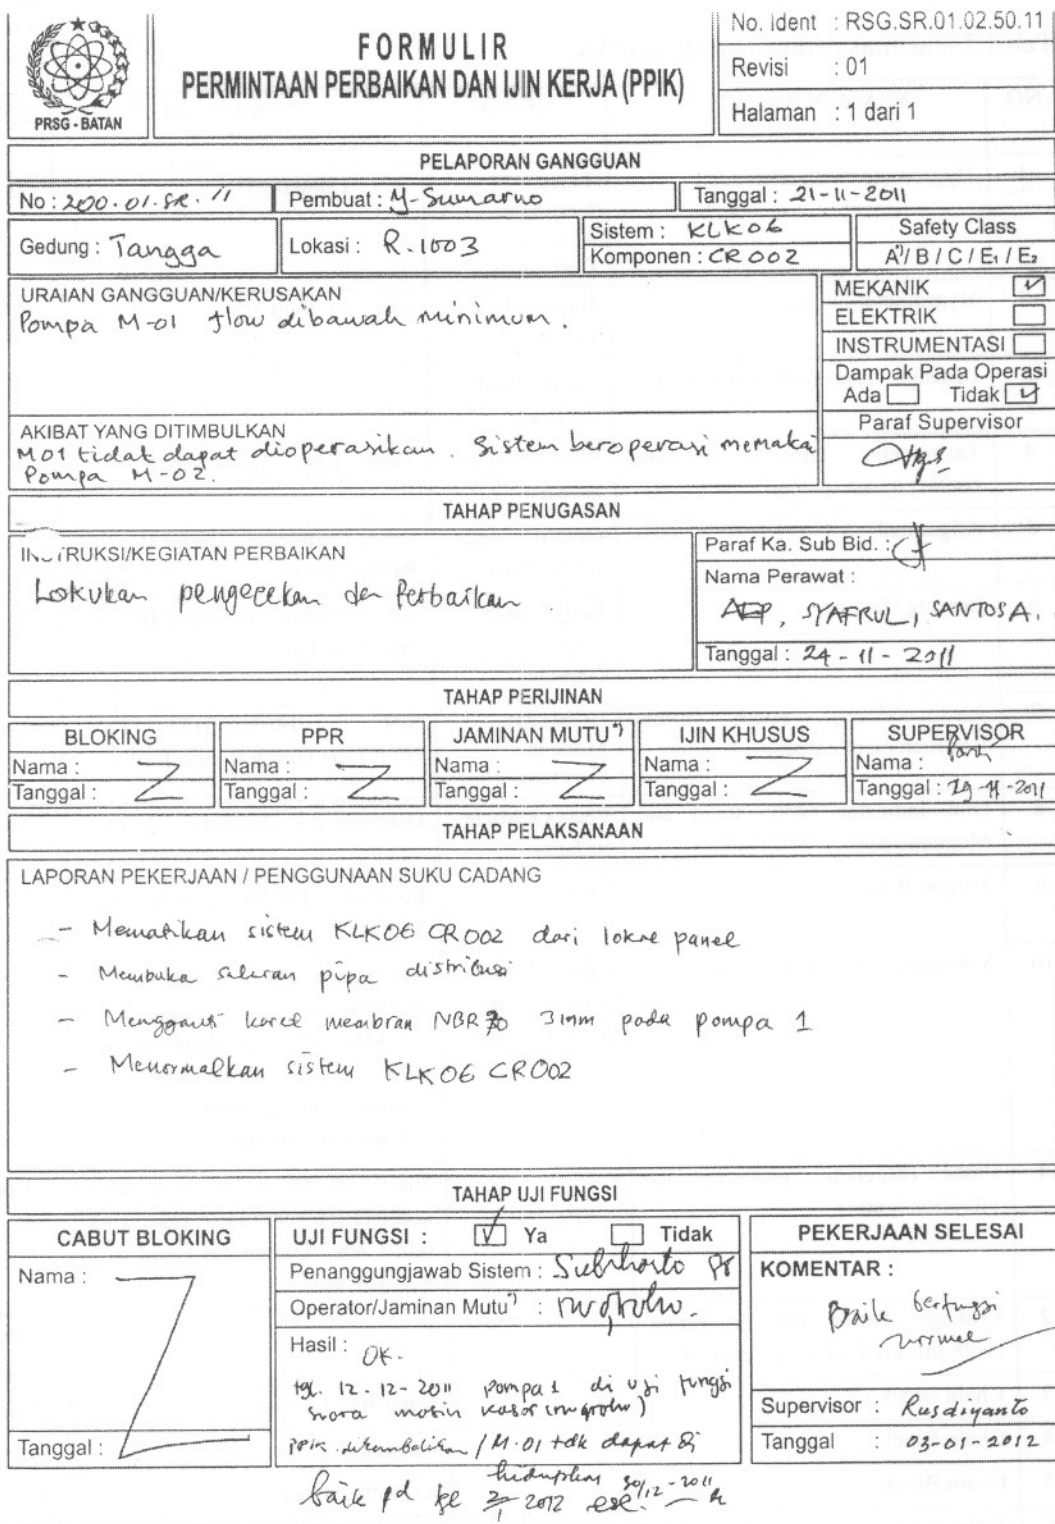 No. Ident : RSG.SR.01.02.50.11
FORMULIR
PERMINTAAN PERBAIKAN DAN IJIN KERJA (PPIK)
Revisi : 01
Halaman : 1 dari 1
PRSG - BATAN
PELAPORAN GANGGUAN
No : 200.01.SR.11 Pembuat : M-Sumarno Tanggal : 21-11-2011
Gedung : Tangga Lokasi : R.1003
Sistem : KLK06
Komponen : CR002
Safety Class
A*)/ B / C / E₁ / E₂
URAIAN GANGGUAN/KERUSAKAN
Pompa M-01 flow dibawah minimum.
MEKANIK
ELEKTRIK
INSTRUMENTASI
Dampak Pada Operasi
Ada Tidak
AKIBAT YANG DITIMBULKAN
M01 tidak dapat dioperasikan. Sistem beroperasi memakai
Pompa M-02.
Paraf Supervisor
TAHAP PENUGASAN
INSTRUKSI/KEGIATAN PERBAIKAN
Lakukan pengecekan dan Perbaikan.
Paraf Ka. Sub Bid. :
Nama Perawat :
AEP, SYAFRUL, SANTOSA.
Tanggal : 24-11-2011
TAHAP PERIJINAN
BLOKING PPR JAMINAN MUTU*) IJIN KHUSUS SUPERVISOR
Nama : Nama : Nama : Nama : Nama :
Tanggal : Tanggal : Tanggal : Tanggal : Tanggal : 29-11-2011
TAHAP PELAKSANAAN
LAPORAN PEKERJAAN / PENGGUNAAN SUKU CADANG
- Mematikan sistem KLK06 CR002 dari lokal panel
- Membuka saluran pipa distribusi
- Mengganti karet membran NBR 70 3mm pada pompa 1
- Menormalkan sistem KLK06 CR002
TAHAP UJI FUNGSI
CABUT BLOKING
Nama :
Tanggal :
UJI FUNGSI : Ya Tidak
Penanggungjawab Sistem :
Operator/Jaminan Mutu*) :
Hasil : OK.
tgl. 12-12-2011 pompa 1 di uji fungsi
suara mesin kasar
PPIK dikembalikan / M.01 tdk dapat di
hidupkan 30/12-2011
baik pd tgl 2/1 2012
PEKERJAAN SELESAI
KOMENTAR :
Baik berfungsi
normal
Supervisor : Rusdiyanto
Tanggal : 03-01-2012